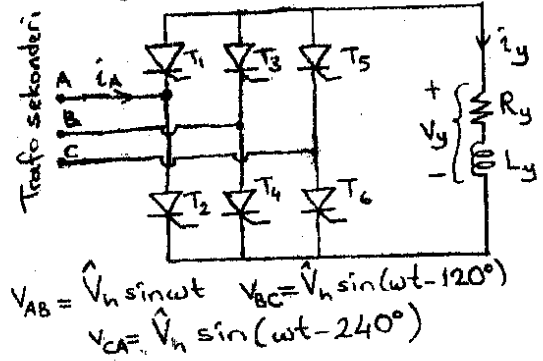 Trafo sekonderi
A
i_A
B
C
T₁
T₃
T₅
T₂
T₄
T₆
i_y
+
V_y
-
R_y
L_y
V_AB = V̂_h sinωt V_BC = V̂_h sin(ωt-120°)
V_CA = V̂_h sin(ωt-240°)